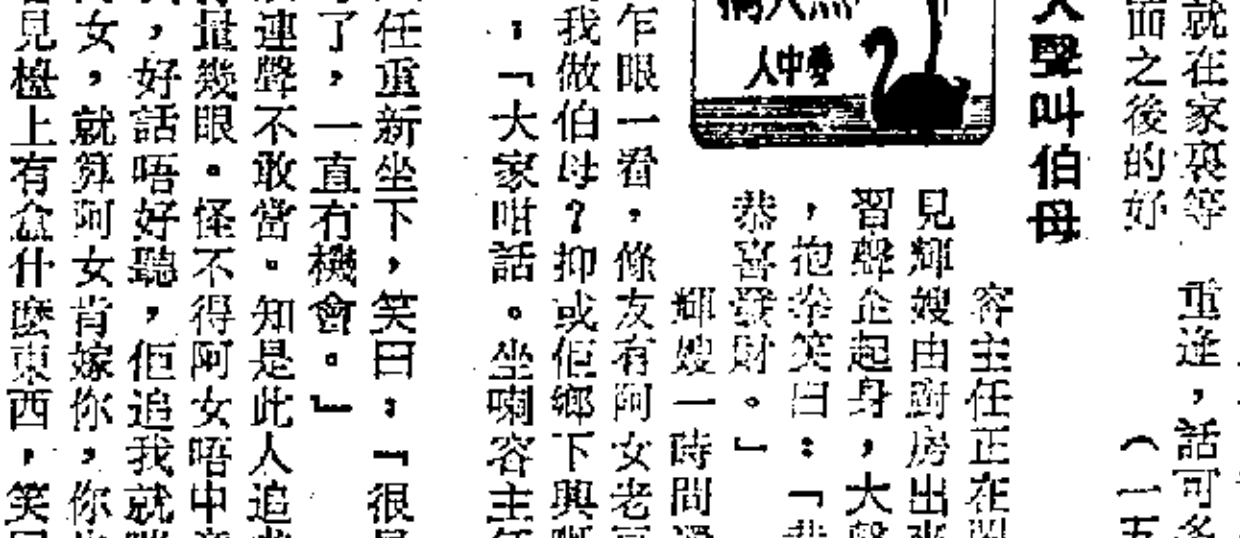 就在家裏等
重逢，話可多
面之後的好
（一五
大聲叫伯母
夢中人
容主任正在
見輝嫂由廚房出來
習聲企起身，大聲
，抱拳笑曰：「恭
恭喜發財。」
輝嫂一時間
乍眼一看，條友有阿女老
我做伯母？抑或佢鄉下興
：「大家咁話。坐喇容主任
任重新坐下，笑曰：「很
了，一直有機會。」
連聲不敢當。知是此人追
量幾眼。怪不得阿女唔中意
，好話唔好聽，佢追我就
女，就算阿女肯嫁你，你
見檯上有盒什麼東西，笑曰